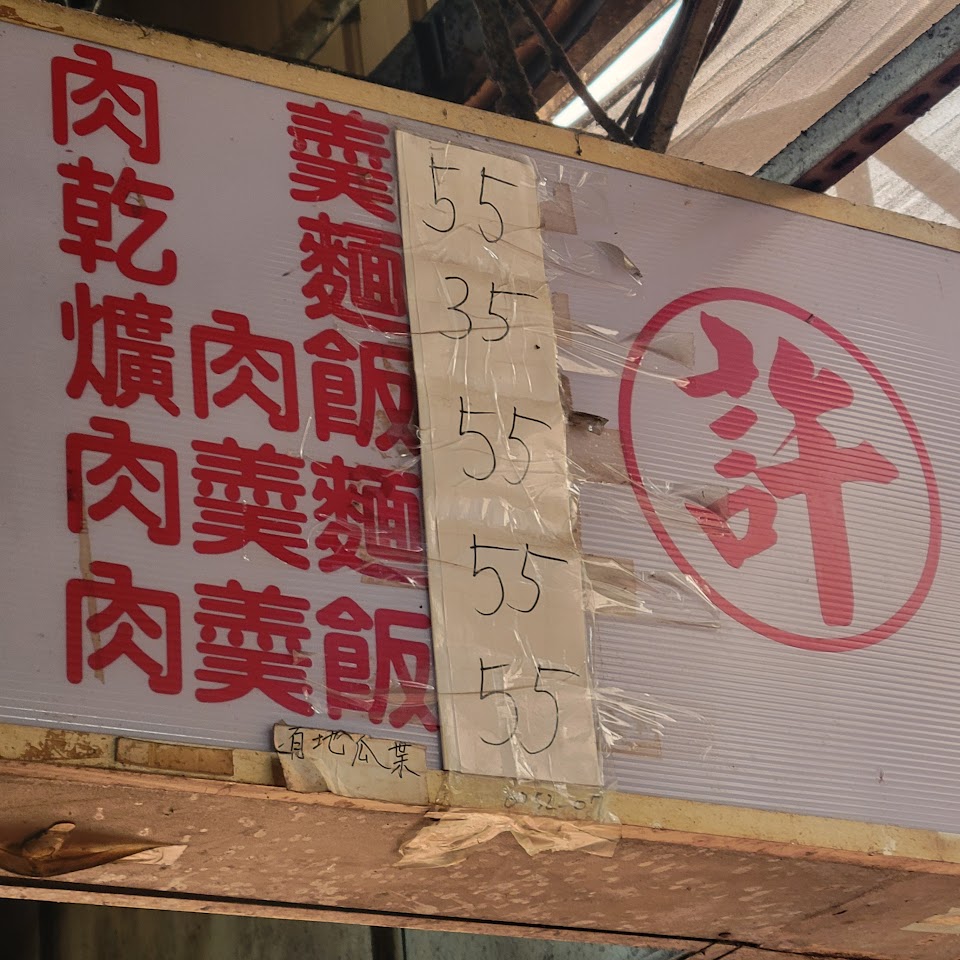 肉羹 55
乾麵 35
爌肉飯 55
肉羹麵 55
肉羹飯 55
許
有地瓜葉